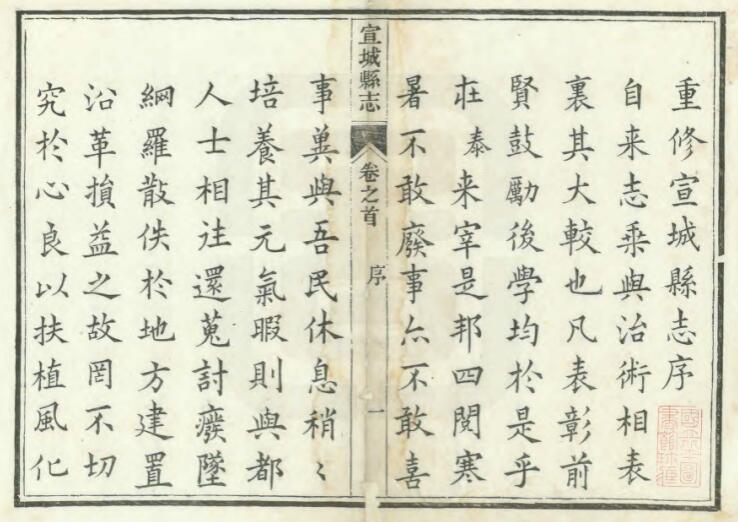 重修宣城縣志序
自来志乘與治術相表
裏其大較也凡表彰前
賢鼓勵後學均於是乎
在泰来宰是邦四閱寒
暑不敢廢事亦不敢喜
宣城縣志 卷之首 序 一
事兾與吾民休息稍〻
培養其元氣暇則與都
人士相往還蒐討廢墜
網羅散佚於地方建置
沿革損益之故罔不切
究於心良以扶植風化